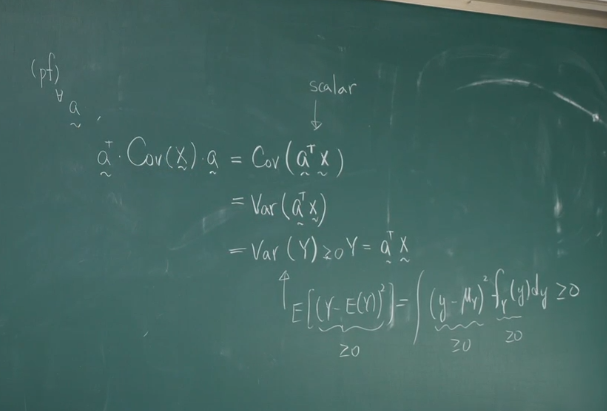 (pf)
∀ a̰ ,
scalar
↓
a̰ᵀ · Cov(X̰) · a̰ = Cov(a̰ᵀ X̰)
= Var(a̰ᵀ X̰)
= Var(Y) ≥0 Y = a̰ᵀ X̰
↑ E[(Y - E(Y))²] = ∫ (y - μ_Y)² f_Y(y) dy ≥ 0
≥0 ≥0 ≥0